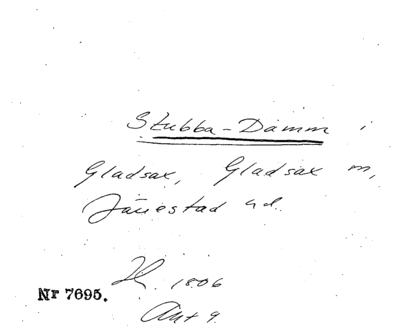 Stubba-Damm i
Gladsax, Gladsax m,
Järrestad hd.
H. 1806
Nr 7695.
Akt 9.